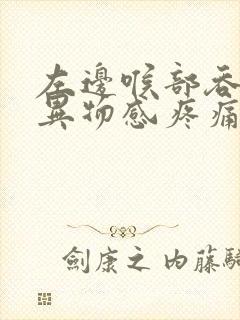 左邊喉部吞
異物感疼痛
劍康之內藤騎